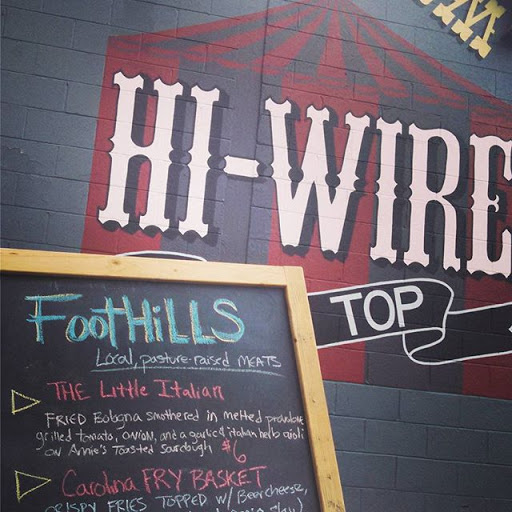 HI-WIRE
TOP
FootHiLLS
Local, pasture-raised MEATS
THE Little Italian
FRIED Bologna smothered in melted provolone
grilled tomato, onion, and a garlic & italian herb aioli
ON Annie's Toasted Sourdough $6
Carolina FRY BASKET
CRISPY FRIES TOPPED w/ Beer cheese,